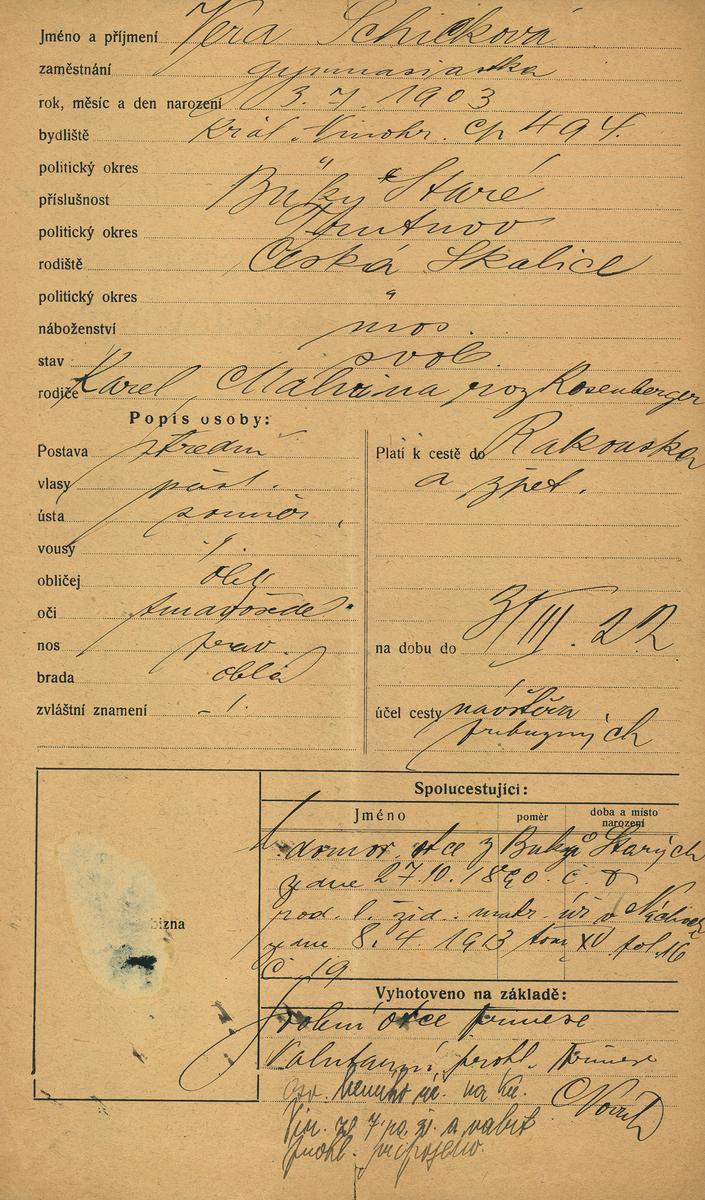 Jméno a příjmení Věra Schicková
zaměstnání gymnasiastka
rok, měsíc a den narození 3. 7. 1903
bydliště Král. Vinohr. čp 494.
politický okres "
příslušnost Buky Staré
politický okres Trutnov
rodiště Česká Skalice
politický okres "
náboženství mos.
stav svob.
rodiče Karel, Malvina roz Rosenberger
Popis osoby:
Postava střední
vlasy
ústa souměr.
vousy /.
obličej obl.
oči tmavošedé
nos prav.
brada oblá
zvláštní znamení – /.
Platí k cestě do Rakouska
a zpět.
na dobu do 3/III. 22
účel cesty návštěva
příbuzných
Spolucestující:
Jméno poměr doba a místo
narození
domov. otce z Buků Starých
ze dne 27.10. 1890. č. 8
rod. l. žid. matr. úř v
ze dne 8. 4. 1913 tom XV fol. 16
č. 19
Vyhotoveno na základě:
otce
prohl.
na Kr.
Vin. ze 7 a valut
prohl. připojeno.